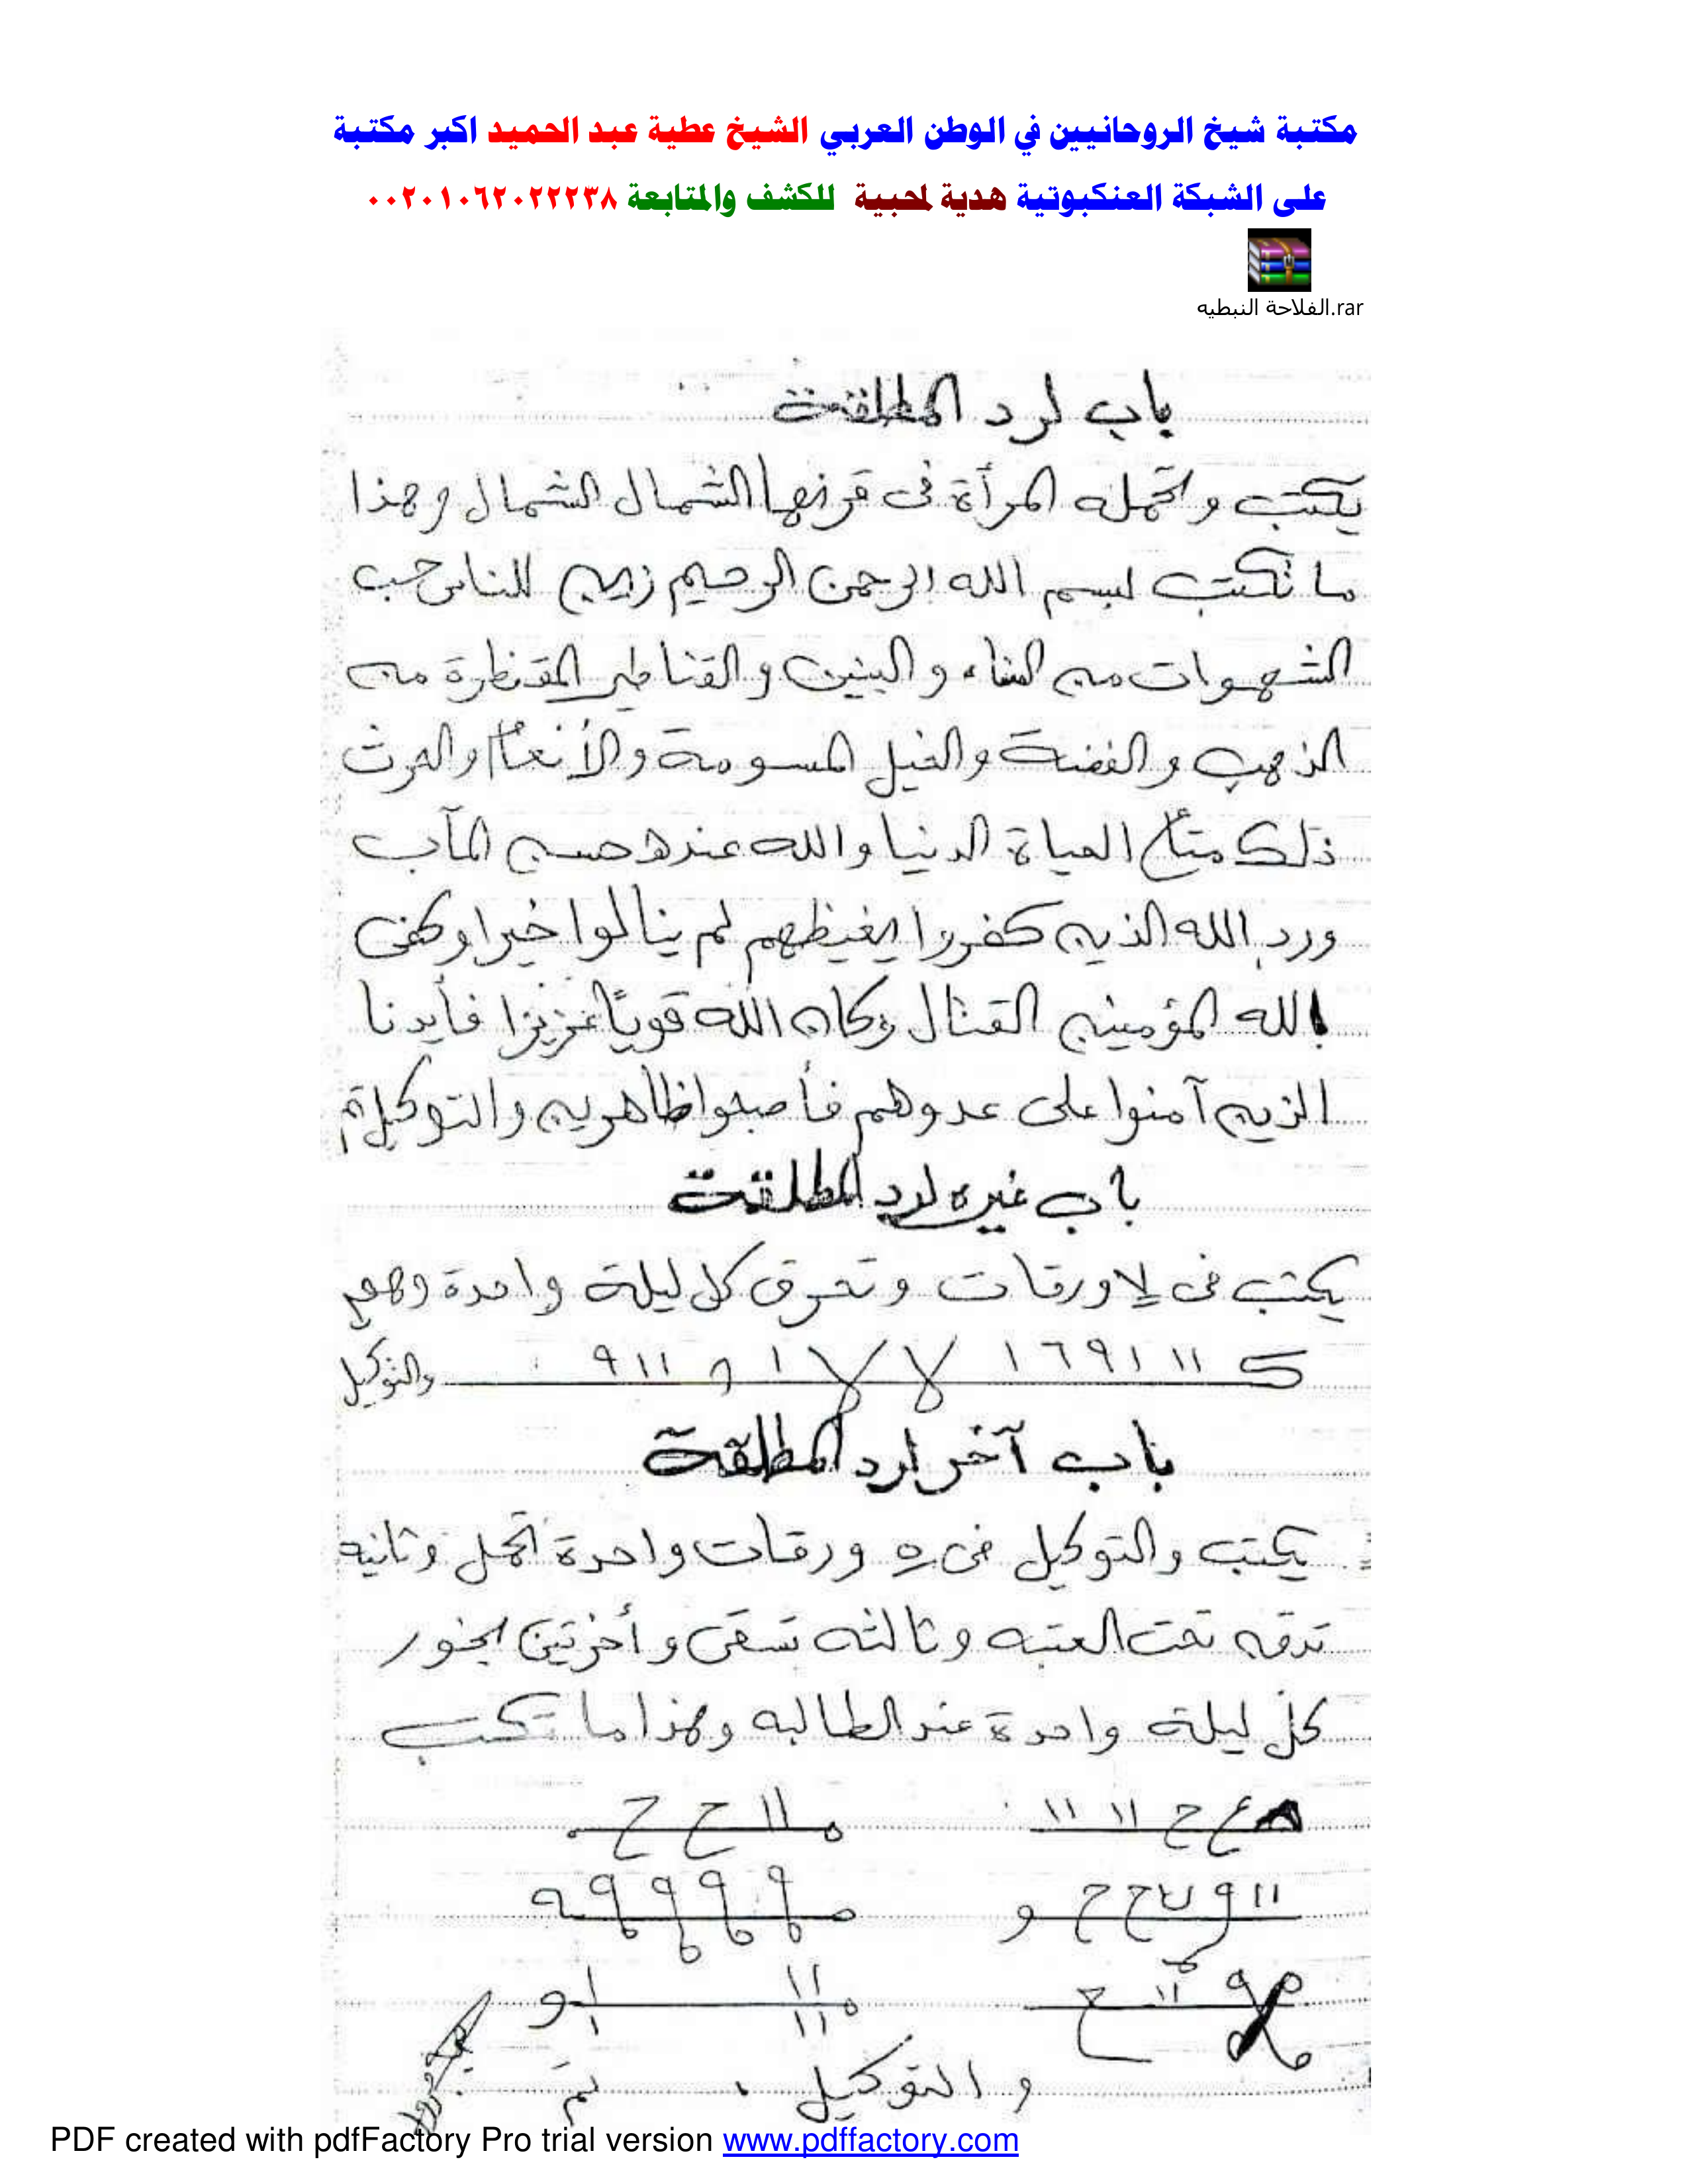 مكتبة شيخ الروحانيين في الوطن العربي الشيخ عطية عبد الحميد اكبر مكتبة
على الشبكة العنكبوتية هدية لمحبية للكشف والمتابعة ٠٠٢٠١٠٦٢٠٢٢٢٣٨
الفلاحة النبطيه.rar
باب لرد المطلقة
يكتب وتحمله المرأة فى قرنها الشمال الشمال وهذا
ما تكتب بسم الله الرحمن الرحيم زين للناس حب
الشهوات من النساء والبنين والقناطير المقنطرة من
الذهب والفضة والخيل المسومة والأنعام والحرث
ذلك متاع الحياة الدنيا والله عنده حسن المآب
ورد الله الذين كفروا بغيظهم لم ينالوا خيرا وكفى
الله المؤمنين القتال وكان الله قويًا عزيزا فأيدنا
الذين آمنوا على عدوهم فأصبحوا ظاهرين والتوكيل تم
باب غيره لرد المطلقة
يكتب فى ٧ ورقات وتحرق كل ليلة واحدة وهم
ك ١١ ١ ٩ ٦ ١ لا لا ١ ٨ ١١ ٩ والتوكيل
باب آخر لرد المطلقة
يكتب والتوكيل فى ٥ ورقات واحدة تحمل وثانيه
تدفن تحت العتبه وثالثه تسقى وأخرتين بخور
كل ليلة واحدة عند الطالبه وهذا ما تكتب
ع ح ١١ ١١ ١١ ح ح
١١ ٩ ح ح و ٩ ٩ ٩ ٩ ه
١١ ح ١١ ١١ ١ و
والتوكيل . تم
PDF created with pdfFactory Pro trial version www.pdffactory.com